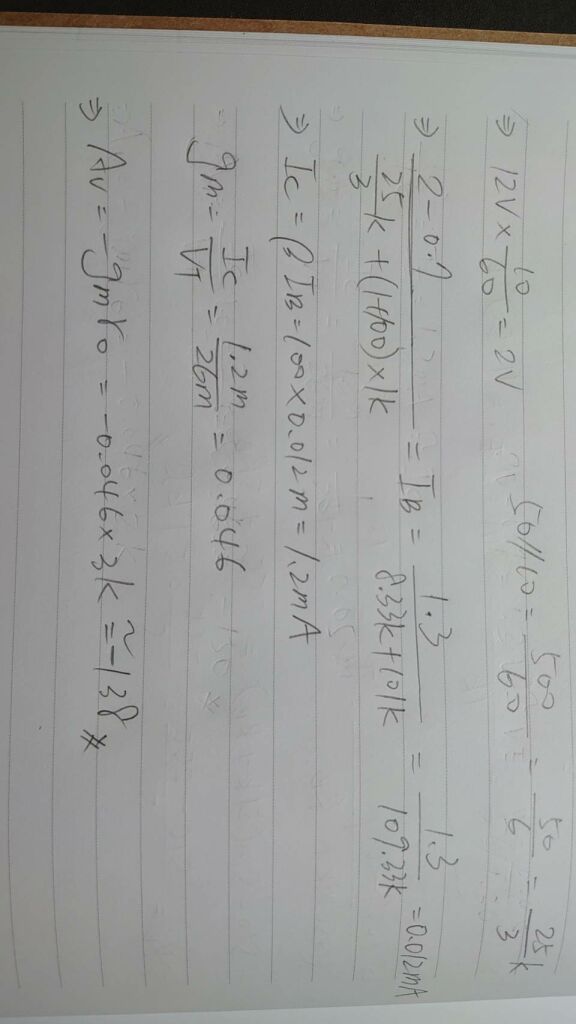 ⇒ 12V × 10/60 = 2V 50//10 = 500/60 = 50/6 = 25/3 k
⇒ (2-0.7)/(25/3 k + (1+100)×1k) = IB = 1.3/(8.33k+101k) = 1.3/109.33k = 0.012mA
⇒ Ic = βIB = 100×0.012m = 1.2mA
gm = Ic/VT = 1.2m/26m = 0.046
⇒ Av = -gmro = -0.046×3k ≈ -138